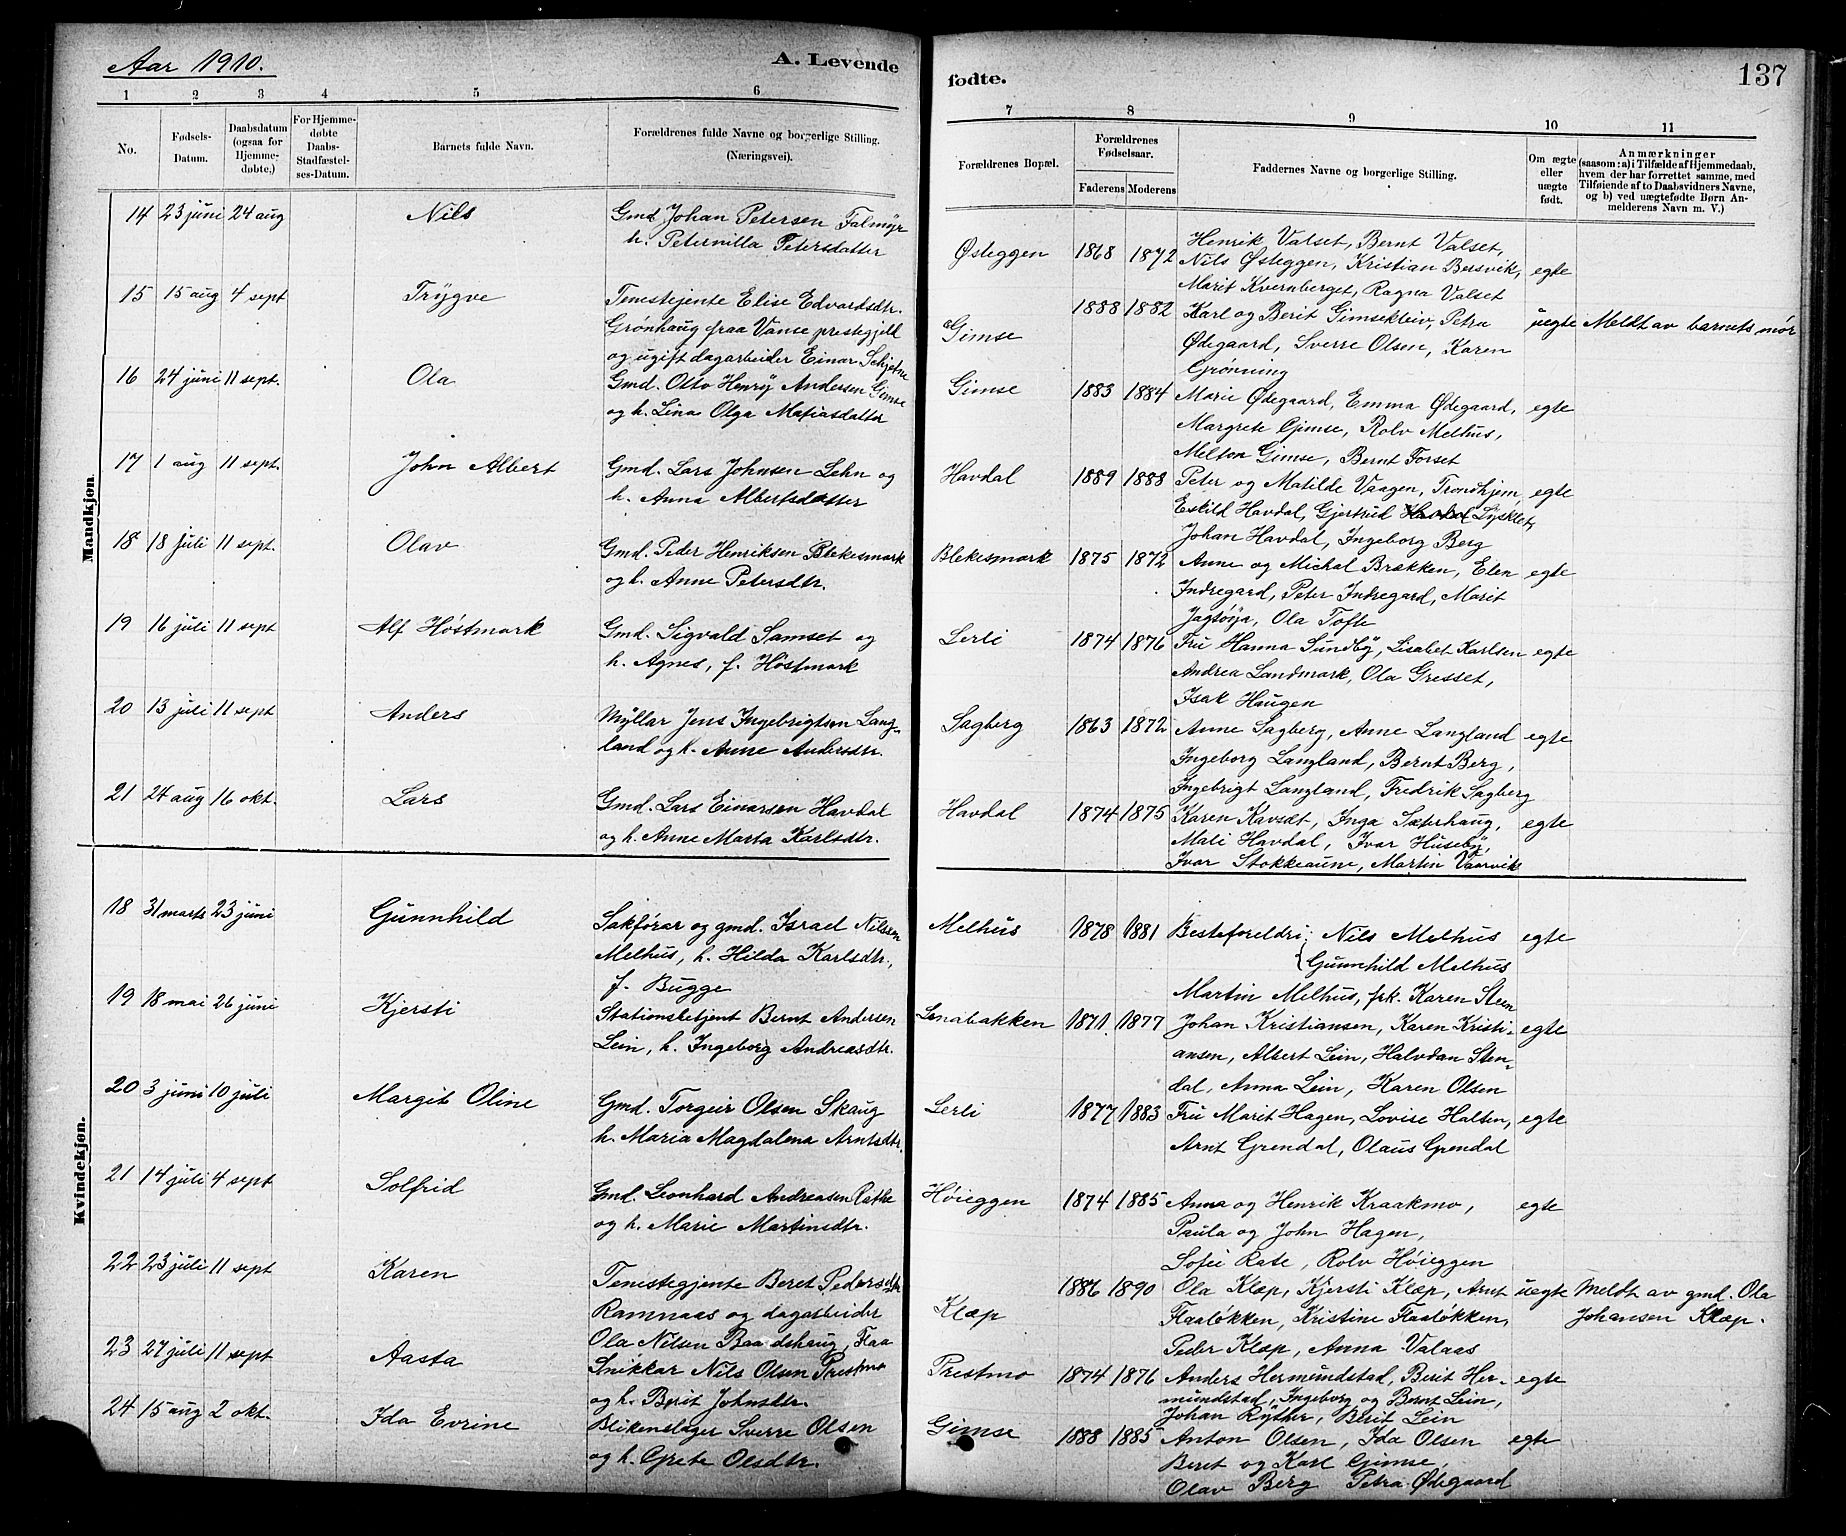 Aar 1910.
A. Levende
fødte.
137
1 2 3 4 5 6
7 8 9 10 11
No.
Fødsels-Datum.
Daabsdatum (ogsaa for Hjemmedøbte,)
For Hjemmedøbte Daabs-Stadfæstelses-Datum.
Barnets fulde Navn.
Forældrenes fulde Navne og borgerlige Stilling.
(Næringsvei).
Forældrenes Bopæl.
Forældrenes Fødselsaar.
Faderens Moderens
Faddernes Navne og borgerlige Stilling.
Om ægte eller uægte født.
Anmærkninger
(saasom: a) i Tilfælde af Hjemmedaab,
hvem der har forrettet samme, med
Tilføiende af to Daabsvidners Navne,
og b) ved uægtefødte Børn Anmelderens Navn m. V.)
Mandkjøn.
14 23 juni 24 aug Nils Gmd Johan Petersen Falmyr
h. Peternilla Petersdatter
Østeggen 1868 1872 Henrik Valset, Bernt Valset,
Nils Østeggen, Kristian Bessvik, egte
Marit Kvernberget, Ragna Valset
15 15 aug 4 sept Trygve Tenestejente Elise Edvardsdtr.
Grønhaug fraa Vanse prestegjell
og ugift dagarbeider Einar Schjetne
Gimse 1888 1882 Karl og Berit Gimsekleiv, Petra uegte Meldt av barnets mor
Ødegaard, Sverre Olsen, Karen
Grønning
16 24 juni 11 sept. Ola Gmd. Otto Henry Andersen Gimse
og h. Lina Olga Matiasdatter
Gimse 1883 1884 Marie Ødegaard, Emma Ødegaard, egte
Margrete Gimse, Rolv Melhus,
Melton Gimse, Bernt Forset
17 1 aug 11 sept. John Albert Gmd. Lars Johnsen Lehn og
h. Anna Albertsdatter
Havdal 1889 1888 Peter og Matilde Vaagen, Trondhjem, egte
Eskild Havdal, Gjertrud Havdal Lysklet,
Johan Havdal, Ingeborg Berg
18 18 juli 11 sept. Olav Gmd. Peder Henriksen Blekesmark
og h. Anne Petersdtr.
Blekesmark 1875 1872 Anne og Michal Brækken, Elen egte
Indregard, Peter Indregard, Marit
Jagtøya, Ola Tofte
19 16 juli 11 sept Alf Høstmark Gmd. Sigvald Samset og
h. Agnes, f. Høstmark
Lerli 1874 1876 Fru Hanna Sundby, Lisabet Karlsen egte
Andrea Landmark, Ola Gresset,
Isak Haugen
20 13 juli 11 sept Anders Myllar Jens Ingebrigtsen Lang-
land og h. Anne Andersdtr.
Sagberg 1863 1872 Anne Sagberg, Anne Langland egte
Ingeborg Langland, Bernt Berg,
Ingebrigt Langland, Fredrik Sagberg
21 24 aug 16 okt. Lars Gmd. Lars Einarsen Havdal
og h. Anne Marta Karlsdtr.
Havdal 1874 1875 Karen Kavsæt, Inga Sæterhaug, egte
Mali Havdal, Ivar Huseby,
Ivar Stokkeaune, Martin Vaarvik
Kvindekjøn.
18 31 marts 23 juni Gunnhild Sakførar og gmd. Israel Nilssen
Melhus, h. Hilda Karlsdtr.,
f. Bugge
Melhus 1878 1881 Besteforeldri: Nils Melhus egte
Gunnhild Melhus
Martin Melhus, frk. Karen Steen
19 18 mai 26 juni Kjersti Stationsbetjent Bernt Andersen
Lein, h. Ingeborg Andreasdtr.
Lenabakken 1871 1877 Johan Kristiansen, Karen Kristi- egte
ansen, Albert Lein, Halvdan Sten-
dal, Anna Lein, Karen Olsen
20 3 juni 10 juli Margit Oline Gmd. Torgeir Olsen Skaug
h. Maria Magdalena Arntsdtr.
Lerli 1877 1883 Fru Marit Hagen, Lovise Halten, egte
Arnt Grendal, Olaus Grendal
21 14 juli 4 sept Solfrid Gmd. Leonhard Andreasen Rathe
og h. Marie Martinsdtr.
Høieggen 1874 1885 Anna og Henrik Kraakmo, egte
Paula og John Hagen,
Sofie Rate, Rolv Høieggen
22 23 juli 11 sept Karen Tenestegjente Beret Pedersdtr
Ramnaas og dagarbeider
Ola Nilsen Baadshaug, Flaa
Klæp 1886 1890 Ola Klæp, Kjersti Klæp, Arnt uegte Meldt av gmd. Ola
Flaaløkken, Kristine Flaaløkken, Johansen Klæp.
Peder Klæp, Anna Valaas
23 27 juli 11 sept Aasta Snikkar Nils Olsen Prestmo
og h. Berit Johnsdtr.
Prestmo 1874 1876 Anders Hermundstad, Berit Her- egte
mundstad, Ingeborg og Bernt Lein,
Johan Ryther, Berit Lein
24 15 aug 2 okt. Ida Evrine Blikenslager Sverre Olsen
og h. Grete Olsdtr.
Gimse 1888 1885 Anton Olsen, Ida Olsen egte
Beret og Karl Gimse,
Olav Berg Petra Ødegaard